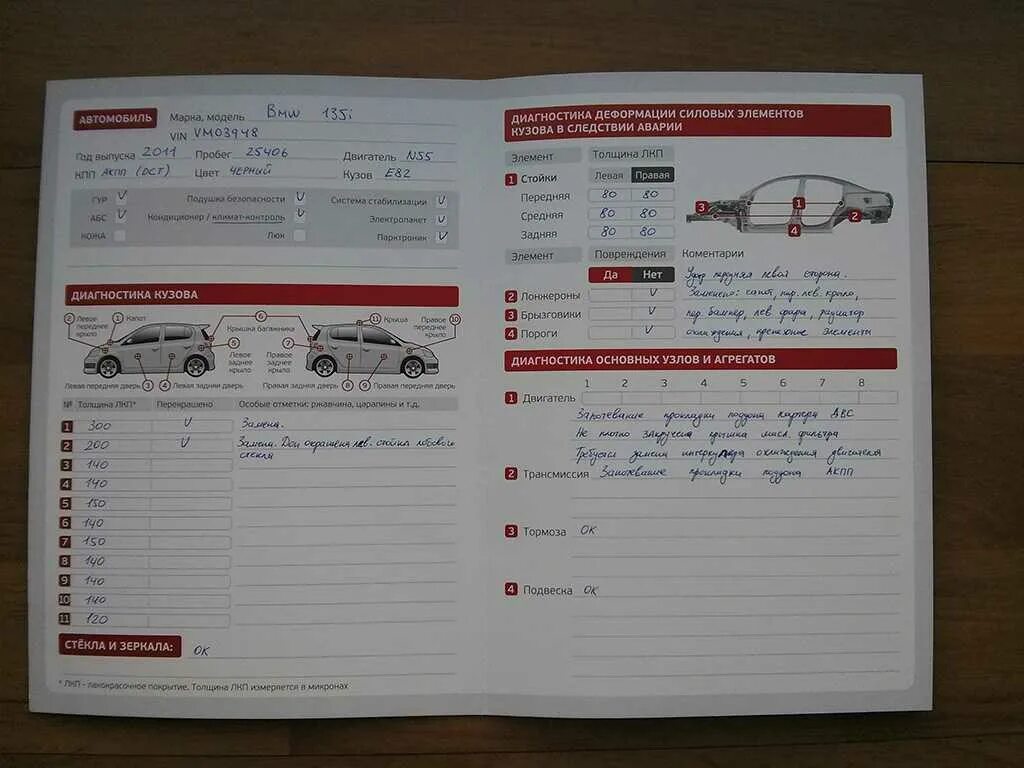 АВТОМОБИЛЬ Марка, модель BMW 135i
VIN VM03948
Год выпуска 2011 Пробег 25406 Двигатель N55
КПП АКПП (DCT) Цвет ЧЕРНЫЙ Кузов E82
ГУР V Подушка безопасности V Система стабилизации V
АБС V Кондиционер / климат-контроль V Электропакет V
КОЖА Люк Парктроник V
ДИАГНОСТИКА КУЗОВА
2 Левое переднее крыло 1 Капот 6 Крышка багажника 11 Крыша Правое переднее крыло 10
5 Левое заднее крыло 7 Правое заднее крыло
Левая передняя дверь 3 4 Левая задняя дверь Правая задняя дверь 8 9 Правая передняя дверь
№ Толщина ЛКП* Перекрашено Особые отметки: ржавчина, царапины и т.д.
1 300 V Замена.
2 200 V Замена. Для окрашена лев. стойка лобового
стекла
3 140
4 140
5 150
6 140
7 150
8 140
9 140
10 140
11 120
СТЁКЛА И ЗЕРКАЛА: OK
* ЛКП - лакокрасочное покрытие. Толщина ЛКП измеряется в микронах
ДИАГНОСТИКА ДЕФОРМАЦИИ СИЛОВЫХ ЭЛЕМЕНТОВ
КУЗОВА В СЛЕДСТВИИ АВАРИИ
Элемент Толщина ЛКП
1 Стойки Левая Правая
Передняя 80 80
Средняя 80 80
Задняя 80 80
3 1 2 4
Элемент Повреждения Коментарии
Да Нет Удар передняя левая сторона.
2 Лонжероны V Заменено: капот, пер. лев. крыло,
3 Брызговики V пер. бампер, лев. фара, радиатор
4 Пороги V охлаждения, крепежные элементы
ДИАГНОСТИКА ОСНОВНЫХ УЗЛОВ И АГРЕГАТОВ
1 2 3 4 5 6 7 8
1 Двигатель
Запотевание прокладки поддона картера ДВС
Не плотно закручена крышка масл. фильтра
Требуется замена интеркулера охлаждения двигателя
2 Трансмиссия Запотевание прокладки поддона АКПП
3 Тормоза OK
4 Подвеска OK